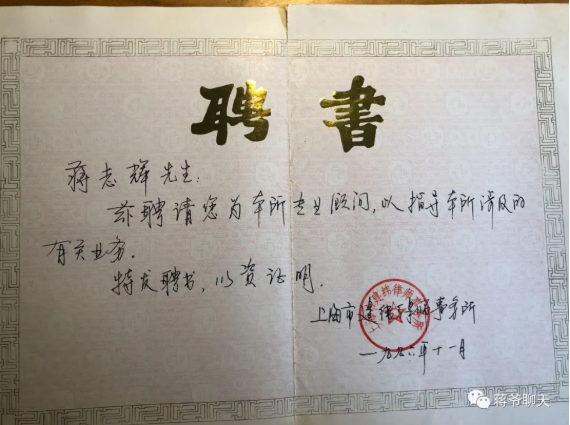 聘书
蒋志辉先生:
兹聘请您为本所专业顾问,以指导本所涉及的
有关业务.
特发聘书,以资证明.
上海市建纬律师事务所
一九九六年十一月
蒋爷聊天